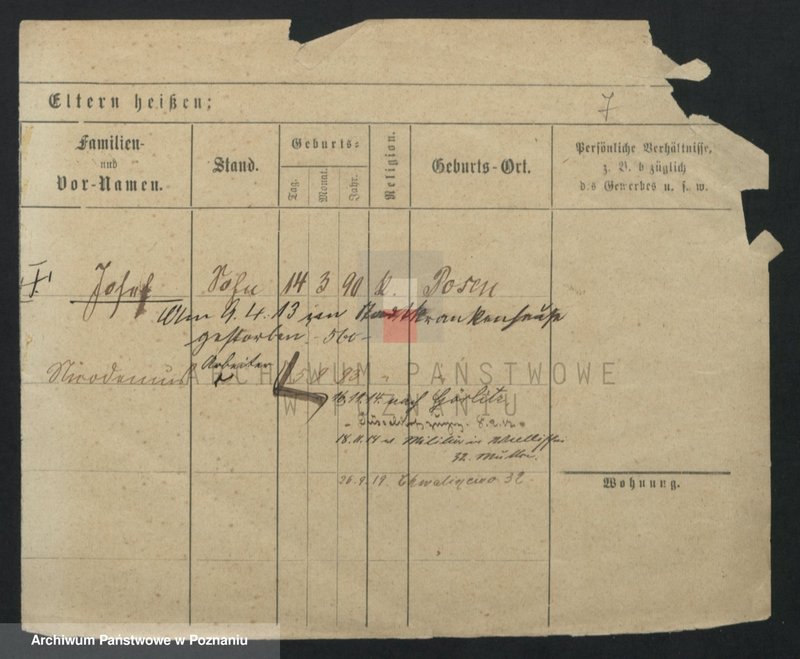 Eltern heißen:
7
Familien-
und
Vor-Namen.
Stand.
Geburts-
Tag.
Monat.
Jahr.
Religion.
Geburts-Ort.
Persönliche Verhältnisse,
z. B. bezüglich
des Gewerbes u. s. w.
Josef Sohn 14 3 90 k. Posen
Am 9. 4. 13 im Stadtkrankenhause
gestorben. - 560 -
Nicodemus Arbeiter
ARCHIWUM PAŃSTWOWE
W POZNANIU
16.11.14. nach Görlitz
18.11.14 Militär
32. Mutter.
26.9.19. Chwaliszewo 32
Wohnung.
Archiwum Państwowe w Poznaniu